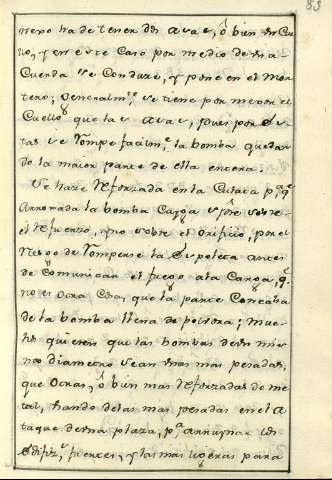 83
nero ha de tener dos Asas, ô bien un Cue
llo, y en este Caso por medio de una
Cuerda se Conduze, y pone en el Mor
tero; Generalmte. se tiene por mejor el
Cuello que las Asas, pues por Es
tas se rompe facilmte. la bomba quedan
do la maior parte de ella entera.
Se haze Reforzada en la Culata pa. qe.
Arrojada la bomba Cayga spre. sobre
el Refuerzo, y no sobre el Orificio, por el
Riesgo de romperse la Espoleta antes
de Comunicar el fuego ala Carga, q.
no es otra Cosa, que la parte Concaba
de la bomba llena de polvora; Mu
chos quieren que las bombas de un mis
mo diametro sean unas mas pesadas,
que Otras, ô bien mas Reforzadas de me
tal, usando delas mas pesadas en el A
taque de una plaza, pa. arruynar los
Edifizs. fuertes, y las mas ligeras para